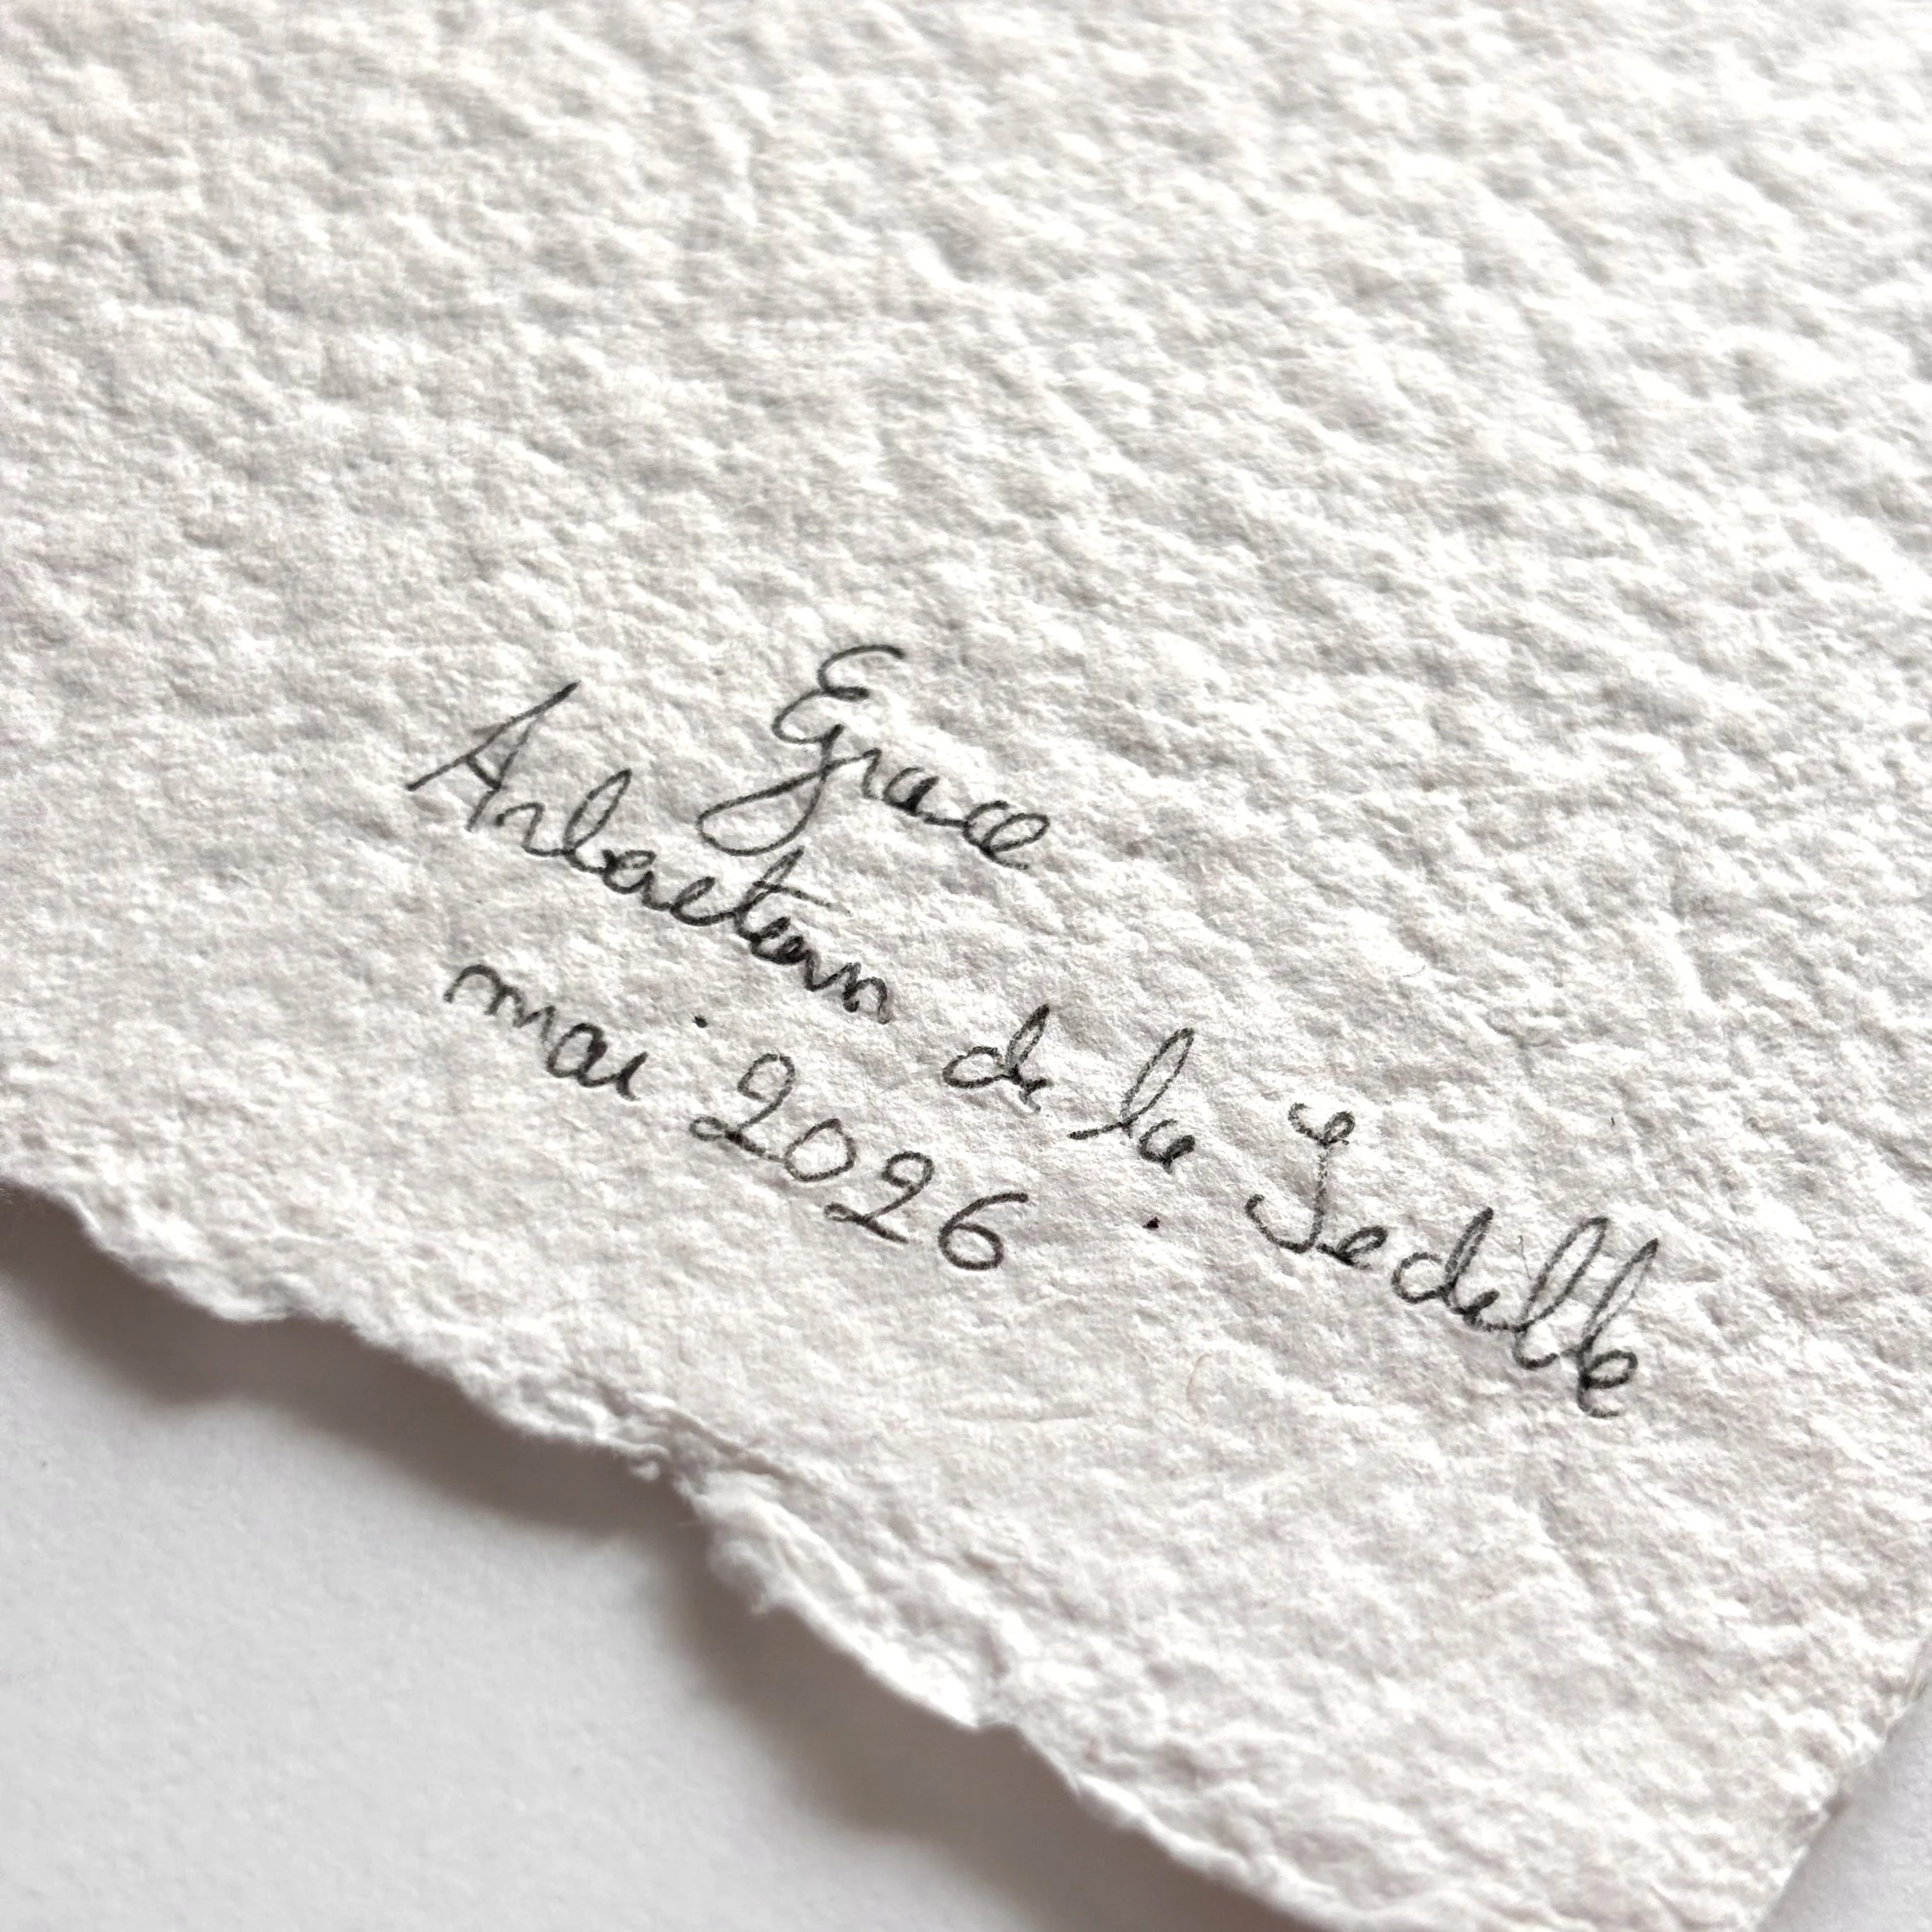 Egrace
Arboretum de la Sedelle
mai 2026